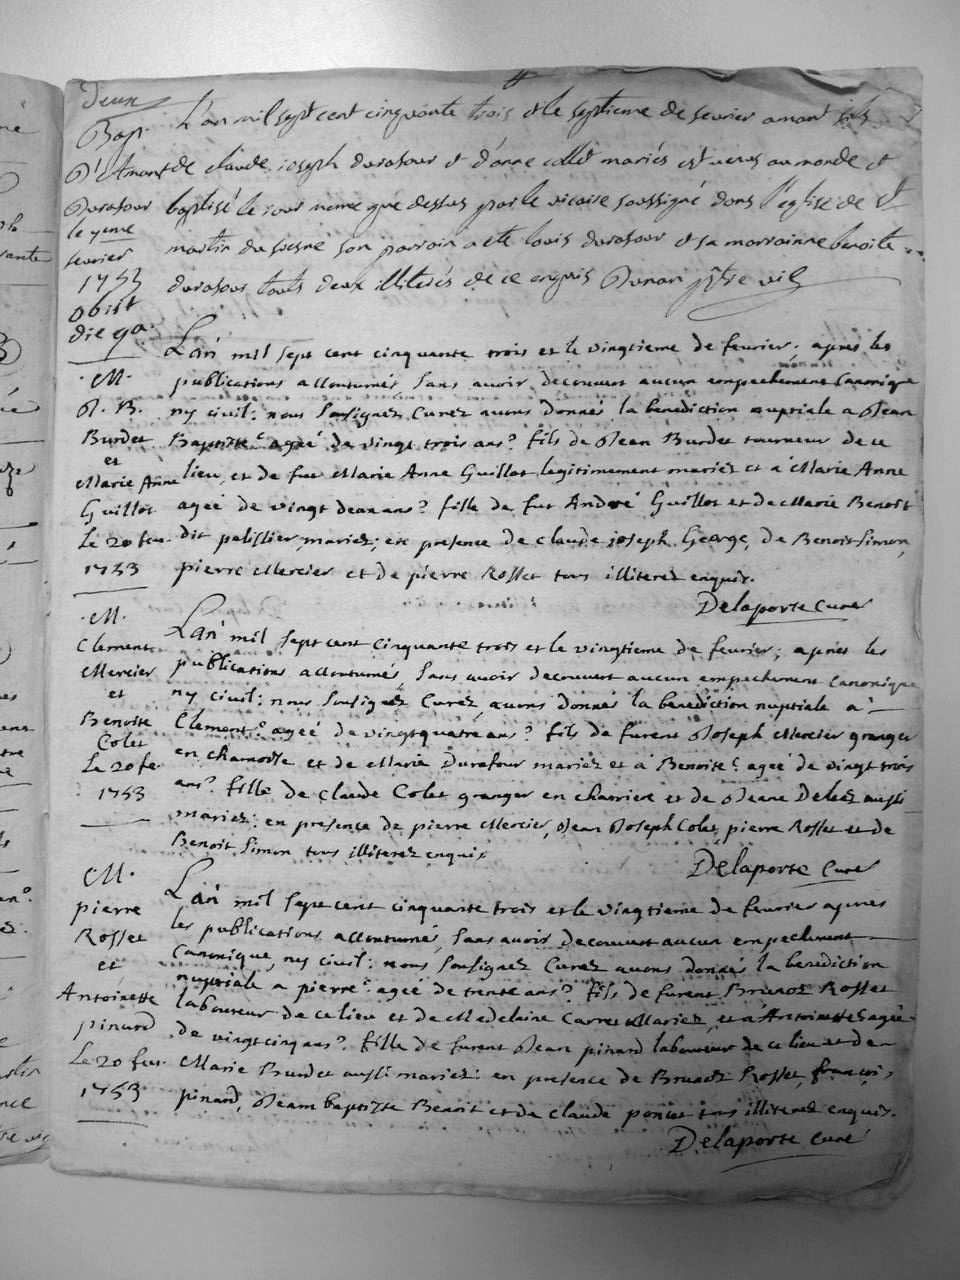 deux
Bap.
D'Amant
Durafour
le 7eme
fevrier
1753
obiit
die 9a
L'an mil sept cent cinquante trois et le septieme de fevrier amant fils
de claude joseph durafour et d'anne collet mariés est venu au monde et
baptisé le jour meme que dessus par le vicaire soussigné dans l'eglise de st
martin du fresne son parrain a ete louis durafour et sa marrainne benoite
durafour touts deux illiterés de ce enquis Dunan ptre vic
.M.
J. B.
Burdet
et
Marie Anne
Guillot
Le 20 fev.
1753
L'an mil sept cent cinquante trois et le vingtieme de fevrier; apres les
publications accoutumés sans avoir decouvert aucun empechement Canonique
ny civil: nous sousignez Curez avons donnés la benediction nuptiale a Jean
Baptiste agée de vingt trois ans? fils de Jean Burdet tourneur de ce
lieu, et de fue Marie Anne Guillot legitimement mariez et a Marie Anne
agée de vingt deux ans? fille de fut André Guillot et de Marie Benoit
dit pelissier, mariez; en presence de claude joseph George, de Benoit Simon,
pierre Mercier et de pierre Rosset tous illiterez enquis.
Delaporte Curez
.M.
Clement
Mercier
et
Benoite
Colet
Le 20 fe.
1753
L'an mil sept cent cinquante trois et le vingtieme de fevrier; apres les
publications accoutumés sans avoir decouvert aucun empechement Canonique
ny civil: nous sousignez Curez avons donnés la benediction nuptiale a
Clement agée de vingtquatre ans? fils de furent Joseph Mercier granger
en chamoise et de Marie Durafour mariez et a Benoite agée de vingt trois
ans? fille de Claude Colet granger en charriere et de Jeane Delez aussi
mariez: en presence de pierre Mercier, Jean Joseph Colet, pierre Rosset et de
Benoit Simon tous illiterez enquis
Delaporte Curé
M.
pierre
Rosset
et
Antoinette
pinard
Le 20 fev.
1753
L'an mil sept cent cinquante trois et le vingtieme de fevrier apres
les publications accoutumé, sans avoir decouvert aucun empechement
Canonique, ny civil: nous sousignez Curez avons donnés la benediction
nuptiale a pierre agée de trente ans? fils de furent Brunoz Rosset
laboureur de ce lieu et de Madelaine Carret Mariez, et a Antoinette agée
de vingt cinq ans? fille de furent Jean pinard laboureur de ce lieu et de
Marie Burdet aussi mariez: en presence de Brunoz Rosset, françois
pinard, Jeam baptiste Benoit et de claude poncet tous illiterez enquis.
Delaporte Curé